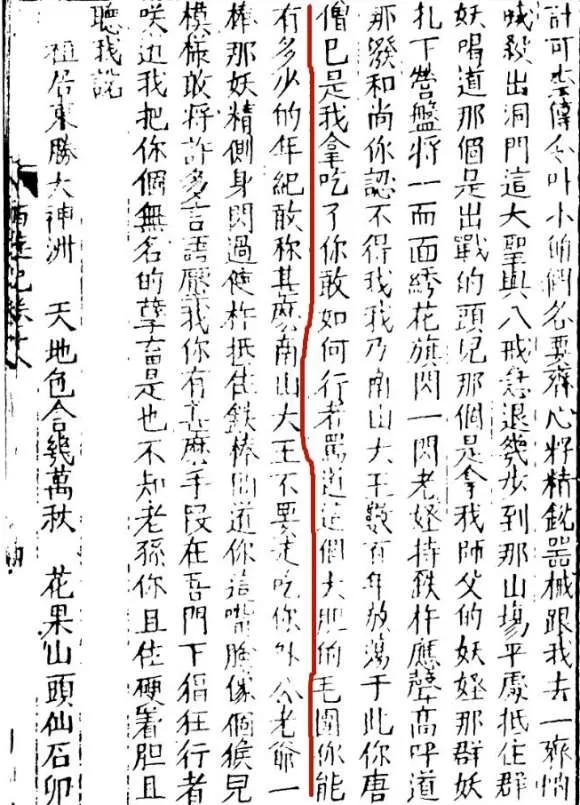 計可去傳令叫小的們各要齊心將精銳器械跟我去一齊吶
喊殺出洞門這大聖與八戒急退幾步到那山塲平處抵住群
妖喝道那個是出戰的頭兒那個是拿我師父的妖怪那群妖
扎下營盤將一面面綉花旗閃一閃老怪持鉄杵應聲高呼道
那潑和尚你認不得我我乃南山大王數百年放蕩于此你唐
僧已是我拿吃了你敢如何行者罵道這個大胆的毛團你能
有多少的年紀敢称甚麽南山大王不要走吃你外公老爺一
棒那妖精側身閃過使杵抵住鉄棒問道你這嘴臉像個猴兒
模樣敢將許多言語壓我你有甚麽手段在吾門下猖狂行者
咲道我把你個無名的孽畜是也不知老孫你且住硬着胆且
聽我說
祖居東勝大神洲　天地包含幾萬秋　花果山頭仙石卵